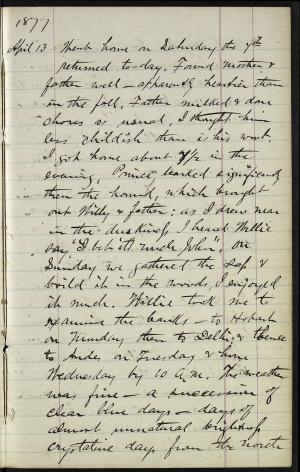 1877
April 13 Went home on Saturday the 7th
returned to-day. Found mother &
father well – apparently heartier than
in the fall. Father milked & done
chores as usual, I thought him
less childish than is his wont.
I got home about 7 1/2 in the
evening, Prince barked significantly
then the hound, which brought
out Willy & father; as I drew near
in the dusk I heard Willie
say "I bet it's uncle John". On
Sunday we gathered the sap &
boild it in the woods, I enjoyed
it much. Willie took me to
examine the banks – to Hobart
on Monday then to Delhi & thence
to Andes on Tuesday & home
Wednesday by 10 A.M. The weather
was fine – a succession of
clear blue days – days of
almost unnatural brightness
crystaline days from the north